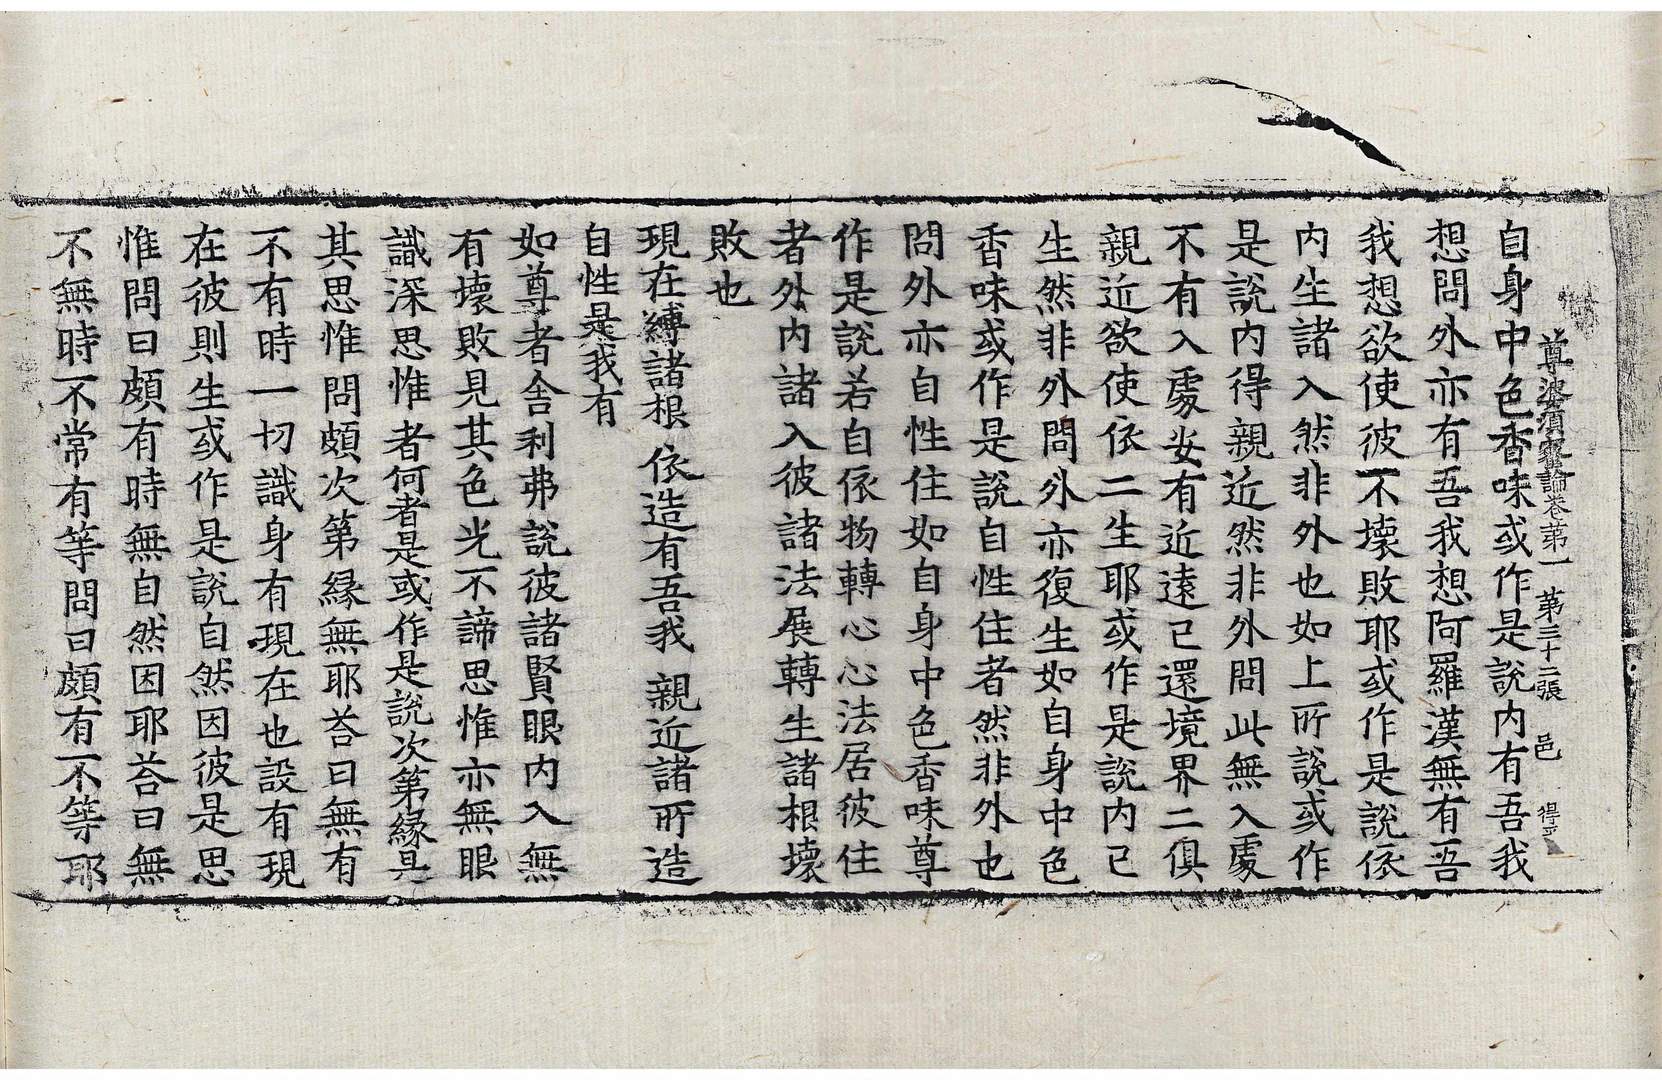 尊婆須蜜論卷第一 第三十二張 邑 得
自身中色香味或作是說內有吾我
想問外亦有吾我想阿羅漢無有吾
我想欲使彼不壞敗耶或作是說依
內生諸入然非外也如上所說或作
是說內得親近然非外問此無入處
不有入處妄有近遠已還境界二俱
親近欲使依二生耶或作是說內已
生然非外問外亦復生如自身中色
香味或作是說自性住者然非外也
問外亦自性住如自身中色香味尊
作是說若自依物轉心心法居彼住
者外內諸入彼諸法展轉生諸根壞
敗也
現在縛諸根 依造有吾我 親近諸所造
自性是我有
如尊者舍利弗說彼諸賢眼內入無
有壞敗見其色光不諦思惟亦無眼
識深思惟者何者是或作是說次第緣是
其思惟問頗次第緣無耶荅曰無有
不有時一切識身有現在也設有現
在彼則生或作是說自然因彼是思
惟問曰頗有時無自然因耶荅曰無
不無時不常有等問曰頗有不等耶